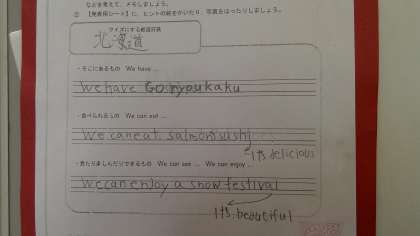 などを考えて、メモしましょう。
② 【発表用シート】に、ヒントの絵をかいたり、写真をはったりしましょう。
クイズにする都道府県
北海道
・そこにあるもの We have ...
We have Goryoukaku
・食べられるもの We can eat ...
We can eat salmon sushi
It's delicious
・見たり楽しんだりできるもの We can see ... We can enjoy ...
We can enjoy a snow festival
It's beautiful